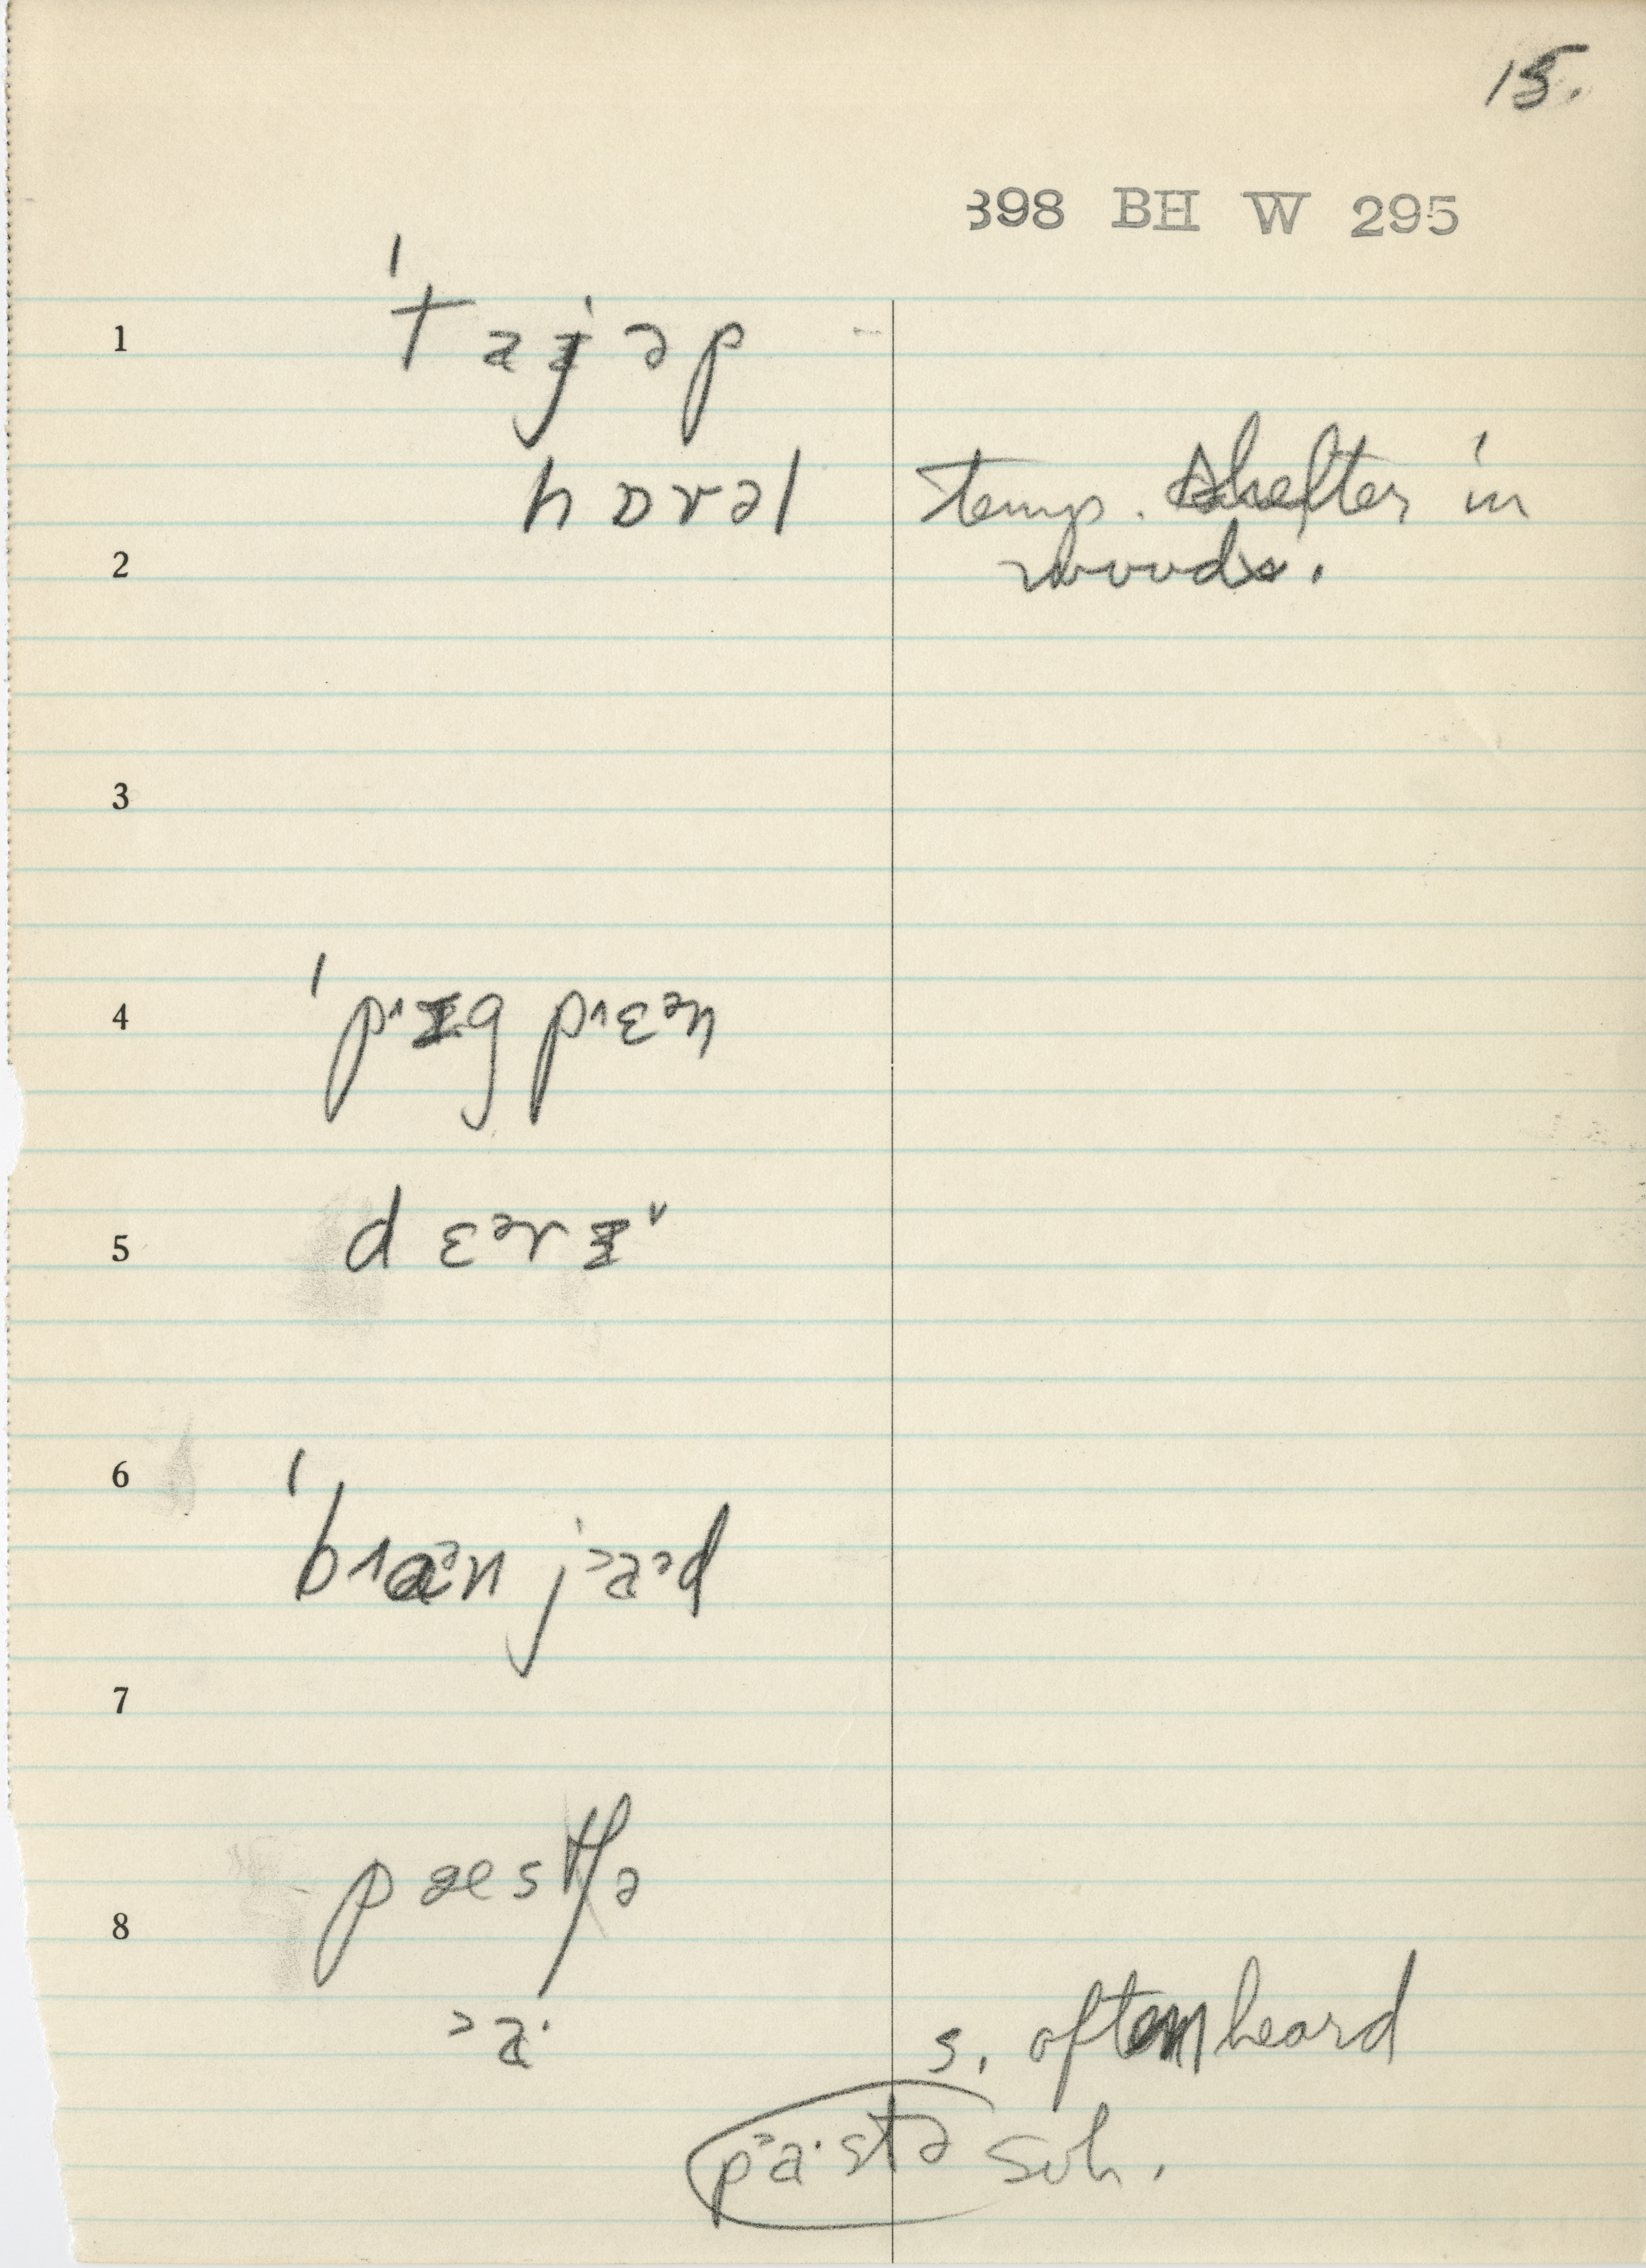 15.
398 BH W 295
1 ˈtajəp
hɒvəl temp. shelter in
2 woods.
3
4 ˈpɪg pɛᵊn
5 dɛᵊrɪ
6 ˈbaᵊn jaᵊd
7
pæstʃə
8
ᵓaˑ s. often heard
pᵓaˑstə sch.